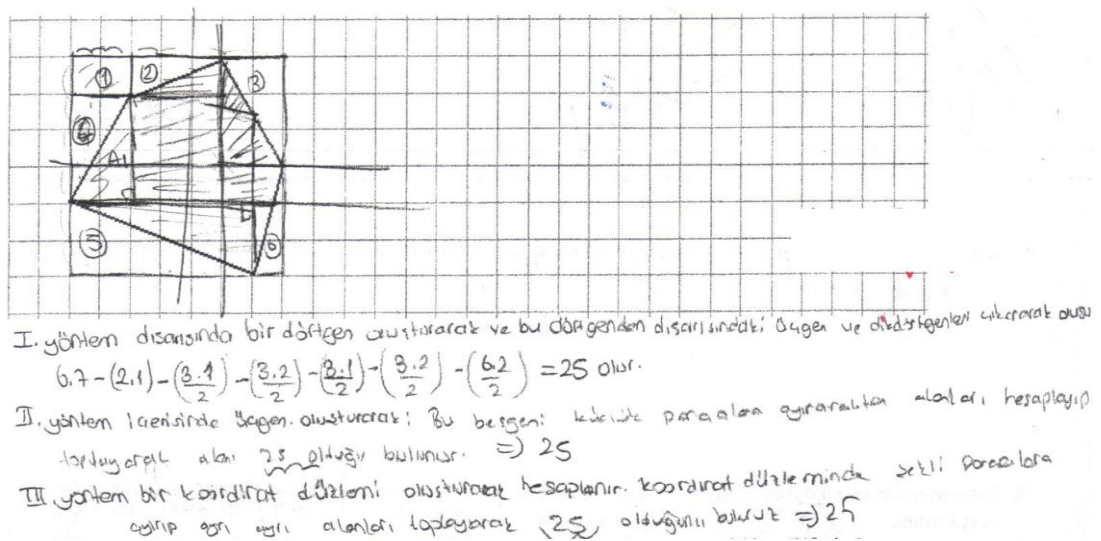 ① ② ③
④ A₁
⑤ ⑥
I. yöntem dışarısında bir dörtgen oluşturarak ve bu dörtgenden dışarısındaki üçgen ve dikdörtgenleri çıkararak
6.7-(2.1)-(3.1/2)-(3.2/2)-(3.1/2)-(3.2/2)-(6.2/2) = 25 olur.
II. yöntem içerisinde üçgen oluşturarak; Bu beşgeni küçük parçalara ayırarak alanları hesaplayıp
toplayarak alanı 25 olduğu bulunur. ⇒ 25
III. yöntem bir koordinat düzlemi oluşturarak hesaplanır. koordinat düzleminde şekli parçalara
ayırıp ayrı ayrı alanları toplayarak 25 olduğunu buluruz ⇒ 25